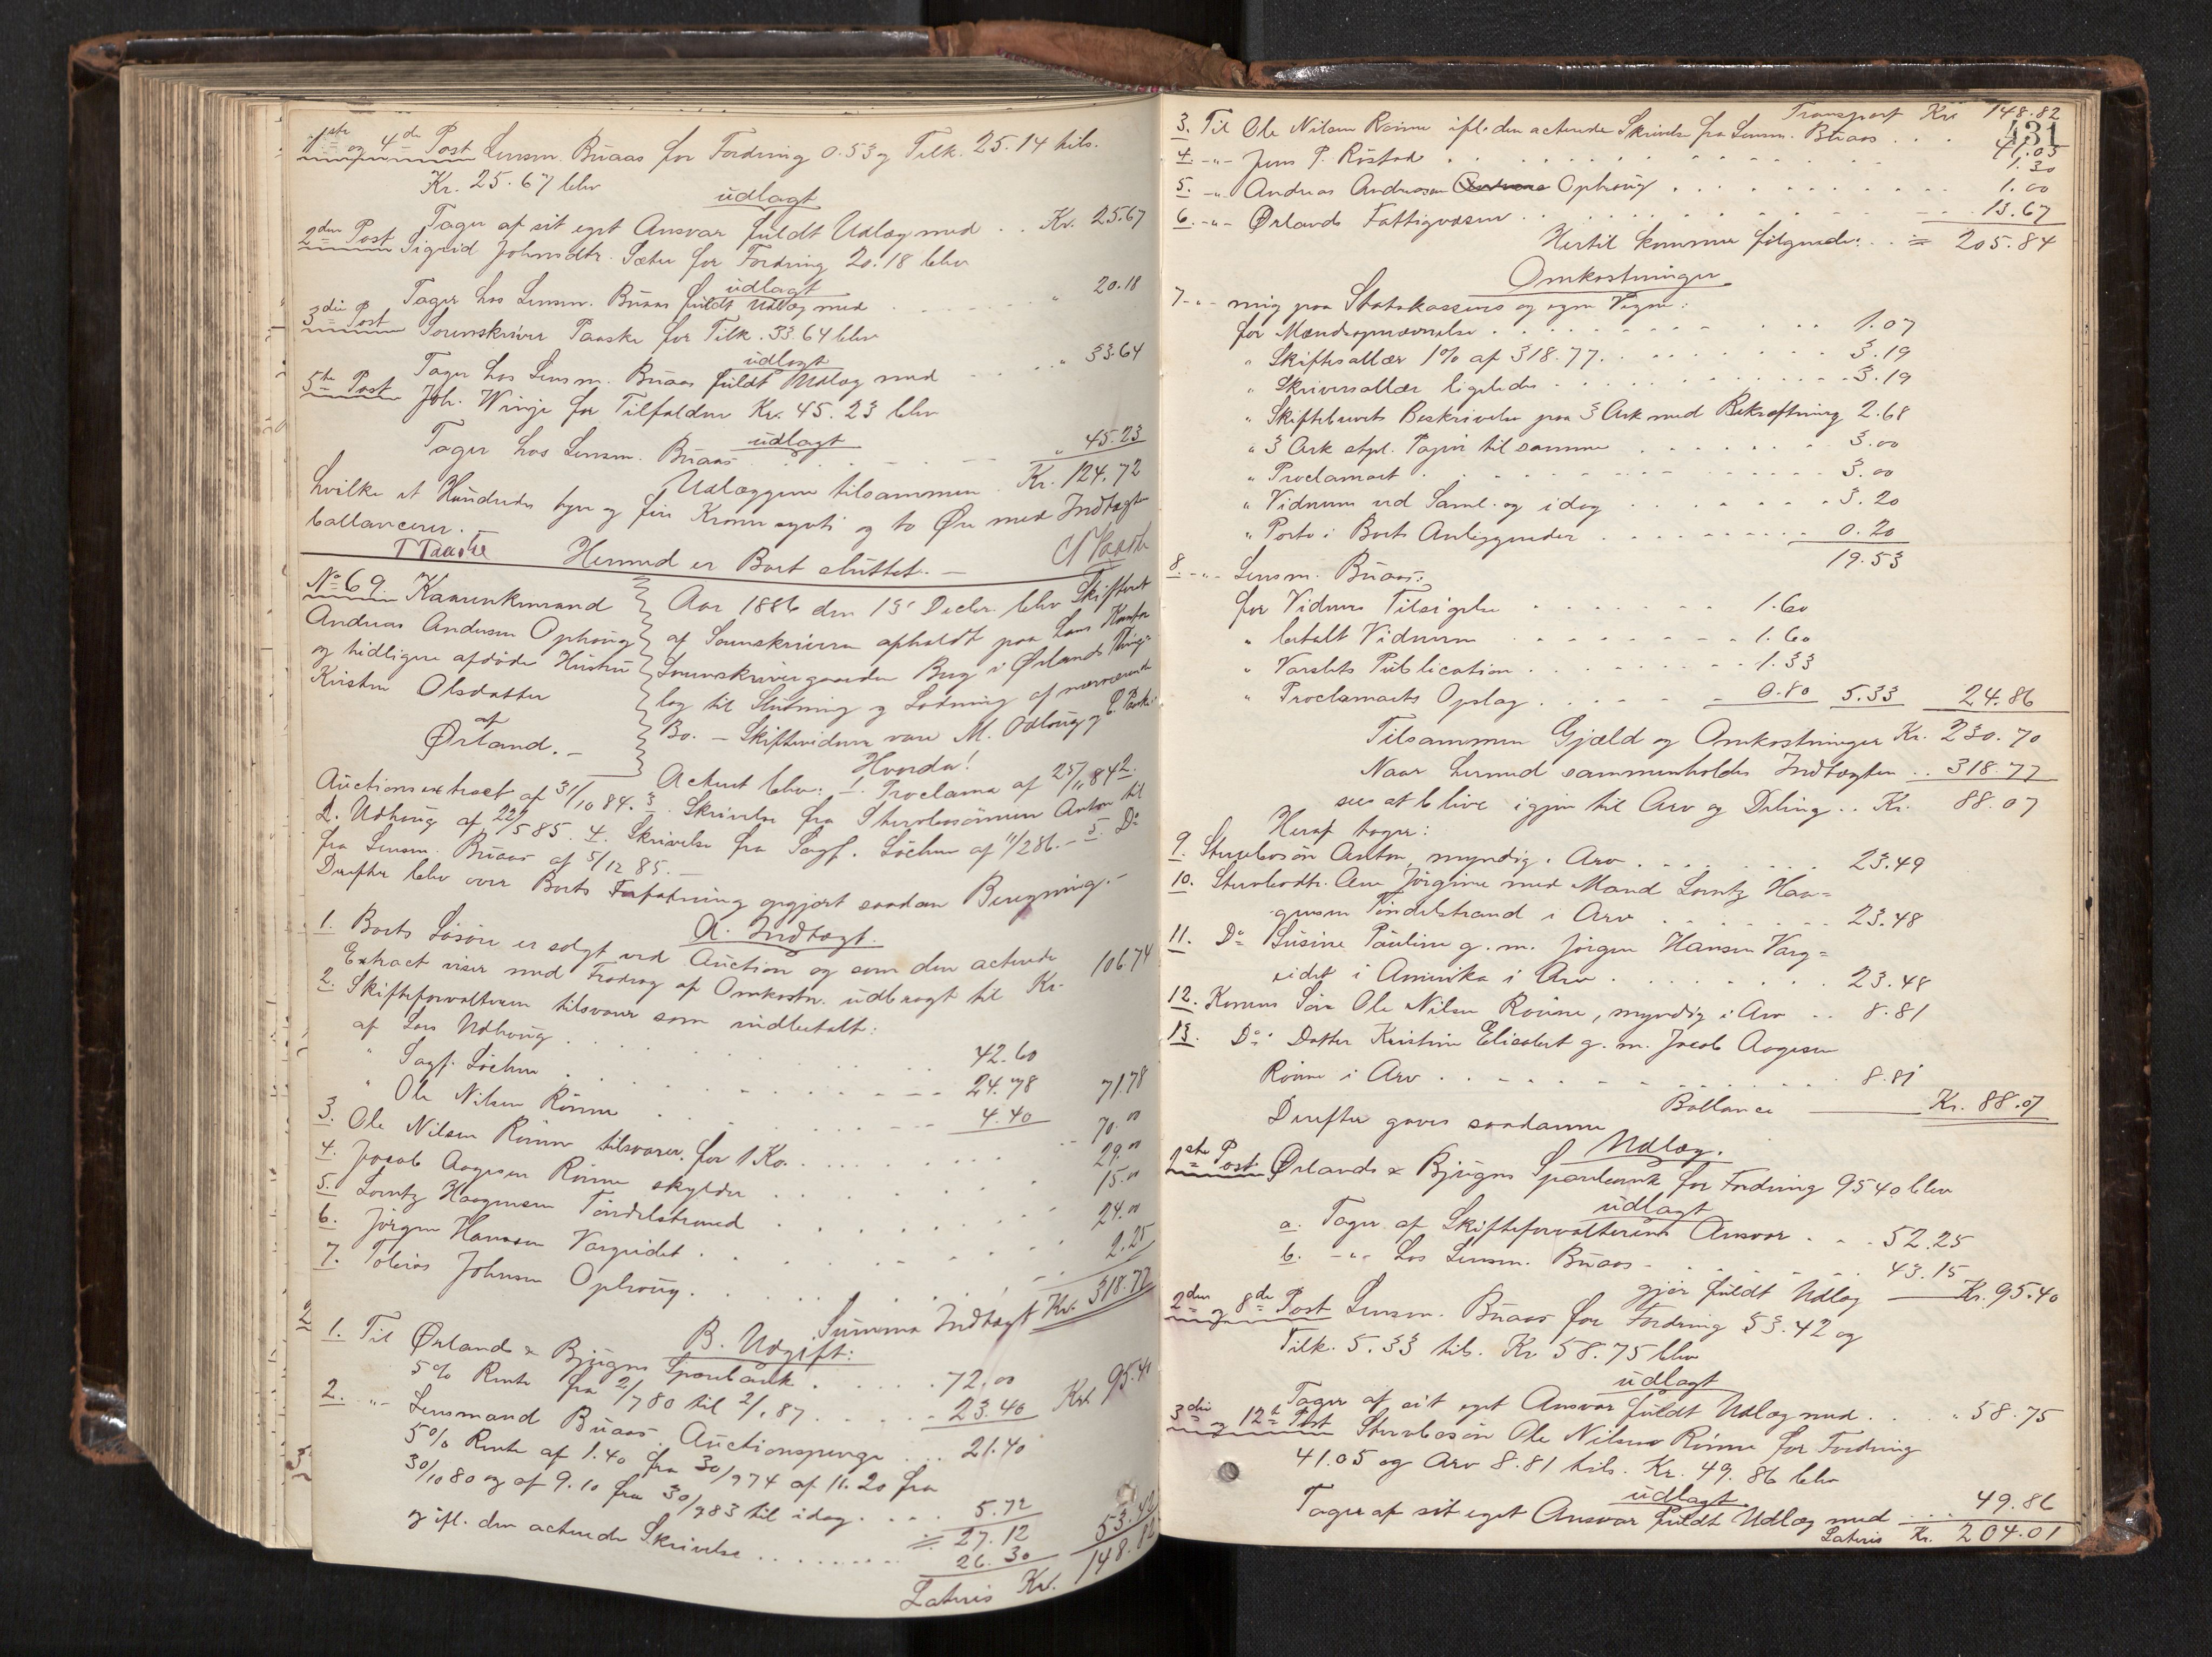 1ste og 4de Post Lensm. Buaas for Fordring 0.53 og Tilk. 25.14 tils.
Kr. 25.67 blev
udlagt
Tager af sit eget Ansvar fuldt Udlæg med . . Kr. 25.67
2den Post Sigrid Johnsdtr. Sæter for Fordring 20.18 blev
udlagt
Tager hos Lensm. Buaas fuldt Udlæg med . . . . . " 20.18
3die Post Sorenskriver Paaske for Tilk. 33.64 blev
udlagt
Tager hos Lensm. Buaas fuldt Udlæg med . . . . " 33.64
5te Post Joh. Winje for Tilfaldne Kr. 45.23 blev
udlagt
Tager hos Lensm. Buaas . . . . . . " 45.23
Udlæggene tilsammen . Kr. 124.72
hvilke et Hundrede tyve og fire Kroner sytti og to Øre med Indtægt
ballancerer. —
Hermed er Boet sluttet. —
T Paaske
No 69. Kaarenkemand
Andreas Andersen Ophoug
og tidligere afdøde Hustru
Kirsten Olsdatter
af
Ørland. —
Aar 1886 den 15' Decbr. blev Skifteret
af Sorenskriveren afholdt paa hans Kontor
Sorenskrivergaarden Brug i Ørlands Thing-
lag til Slutning og Lodning af nærværende
Bo. — Skiftevidner vare M. Odloug og C. Paaske
Hvorda!
Acteret blev: 1. Proclama af 25/11 84 2.
Auctionsextract af 31/10 84. 3. Skrivelse fra Stervbosönnen Anton til
L. Udhoug af 22/5 85. 4. Skrivelse fra Sagf. Löchen af 11/2 86. — 5. Do
fra Lensm. Buaas af 5/12 85. —
Derefter blev over Boets Forfatning opgjort saadan Beregning. —
A. Indtægt.
1. Boets Lösöre er solgt ved Auction og som den acterede
Extract viser med Fradrag af Omkostn. udbragt til Kr. 106.74
2. Skifteforvalteren tilsvarer som indbetalt:
af Lars Udhoug . . . . . . . 42.60
" Sagf. Löchen . . . . . . . 24.78
" Ole Nilsen Rönne . . . . . 4.40 71.78
3. Ole Nilsen Rönne tilsvarer for 1 Ko . . . . . . 70.00
4. Jacob Aagesen Rönne skylder . . . . . . 29.00
5. Lorntz Haagensen Tindelstrand . . . . . . 15.00
6. Jörgen Hansen Vargvidet . . . . . . 24.00
7. Tobias Johnsen Ophoug . . . . . . 2.25
Summa Indtægt Kr. 318.77
B. Udgift:
1. Til Ørlands & Bjugns Sparebank . . . . . 72.00
5% Rente fra 2/7 80 til 2/1 87 . . . . . . 23.40 Kr. 95.40
2. -"- Lensmand Buaas Auctionspenge . . . 21.40
5% Rente af 1.40 fra 30/9 74 af 11.20 fra
30/10 80 og af 9.10 fra 30/9 83 til idag . . . . 5.72
= 27.12
og ifl. den acterede Skrivelse . . . . . . . . 26.30 53.42
Lateris Kr. 148.82
Transport Kr. 148.82
431
3. Til Ole Nilsen Rönne ifl. den acterede Skrivelse fra Lensm. Buaas . . . 41.05
4. -"- Jens P. Röstad . . . . . . . . . . 1.30
5. -"- Andreas Andreassen Ophoug . . . . . . . . 1.00
6. -"- Ørlands Fattigvæsen . . . . . . . . . 13.67
Hertil kommer fölgende: . . = 205.84
Omkostninger
7 -"- mig paa Statskassens og egne Vegne:
for Mændsopnævnelse . . . . . . . . . 1.07
" Skiftesallær 1% af 318.77. . . . . . . . 3.19
" Skriversallær ligeledes . . . . . . . . . 3.19
" Skiftebrevets Beskrivelse paa 3 Ark med Bekræftning 2.68
" 3 Ark stpl. Papir til samme . . . . . . 3.00
" Proclamaet . . . . . . . . . . . 3.00
" Vidnerne ved Saml. og idag . . . . . . . 3.20
" Porto i Boets Anliggender . . . . . . . . . 0.20
19.53
8. -"- Lensm. Buaas:
for Vidners Tilsigelse . . . . . . . 1.60
" betalt Vidnerne . . . . . . . . 1.60
" Varslets Publication . . . . . . . . 1.33
" Proclamaets Opslag . . . . . . 0.80 5.33 24.86
Tilsammen Gjæld og Omkostninger Kr. 230.70
Naar hermed sammenholdes Indtægten . . 318.77
sees at blive igjen til Arv og Deling . . Kr. 88.07
Heraf tager:
9. Stervbosön Anton, myndig i Arv . . . . . . . 23.49
10. Stervbodtr. Ane Jörgine med Mand Lorntz Haa=
gensen Tindelstrand i Arv . . . . . . . 23.48
11. Do Susine Pauline g. m. Jörgen Hansen Varg=
videt i Amerika i Arv . . . . . . . . 23.48
12. Konens Sön Ole Nilsen Rönne, myndig i Arv . . 8.81
13. Do Datter Kristine Elisabet g. m. Jacob Aagesen
Rönne i Arv . . . . . . . . . . . . 8.81
Ballance Kr. 88.07
Derefter gaves saadanne
Udlæg.
1ste Post Ørlands & Bjugns Sparebank for Fordring 95.40 blev
udlagt
a. Tager af Skifteforvalterens Ansvar . . . 52.25
b. -"- hos Lensm. Buaas . . . . . . 43.15
gjör fuldt Udlæg Kr. 95.40
2den og 8de Post Lensm. Buaas for Fordring 53.42 og
Tilk. 5.33 tils. Kr 58.75 blev
udlagt
Tager af sit eget Ansvar fuldt Udlæg med . . . " 58.75
3die og 12te Post Stervbosön Ole Nilsen Rönne for Fordring
41.05 og Arv 8.81 tils. Kr. 49.86 blev
udlagt
Tager af sit eget Ansvar fuldt Udlæg med . . . 49.86
Lateris Kr. 204.01